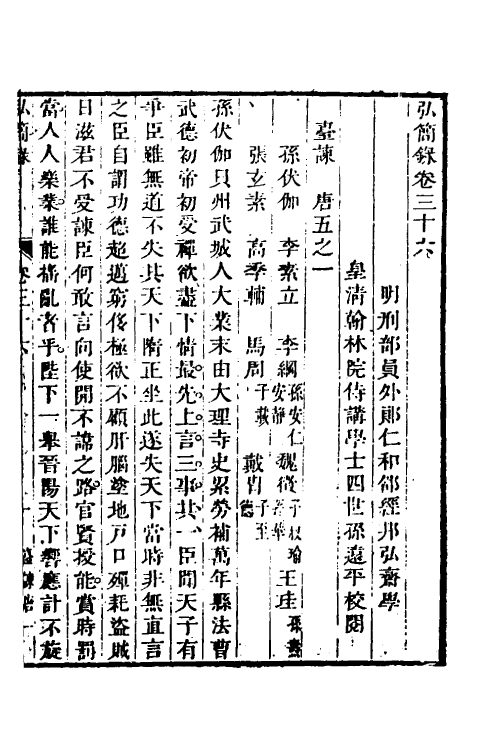 弘簡錄卷三十六
明刑部員外郎仁和邵經邦弘齋學
皇清翰林院侍講學士四世孫遠平校閱
臺諫　唐五之一
孫伏伽　李素立　李綱孫安仁安靜　魏徵子叔瑜　王珪孫燾
張玄素　高季輔　馬周子載　戴冑子至德
孫伏伽貝州武城人大業末由大理寺史累勞補萬年縣法曹
武德初帝初受禪欲盡下情最先上言三事其一臣聞天子有
爭臣雖無道不失其天下隋正坐此遂失天下當時非無直言
之臣自謂功德超邁窮侈極欲不顧肝腦塗地戸口殫耗盜賊
日滋君不受諫臣何敢言向使開不諱之路官賢授能賞時罰
當人人樂業誰能搖亂者乎陛下一舉晉陽天下響應計不旋
弘簡錄　卷三十六　臺諫　一